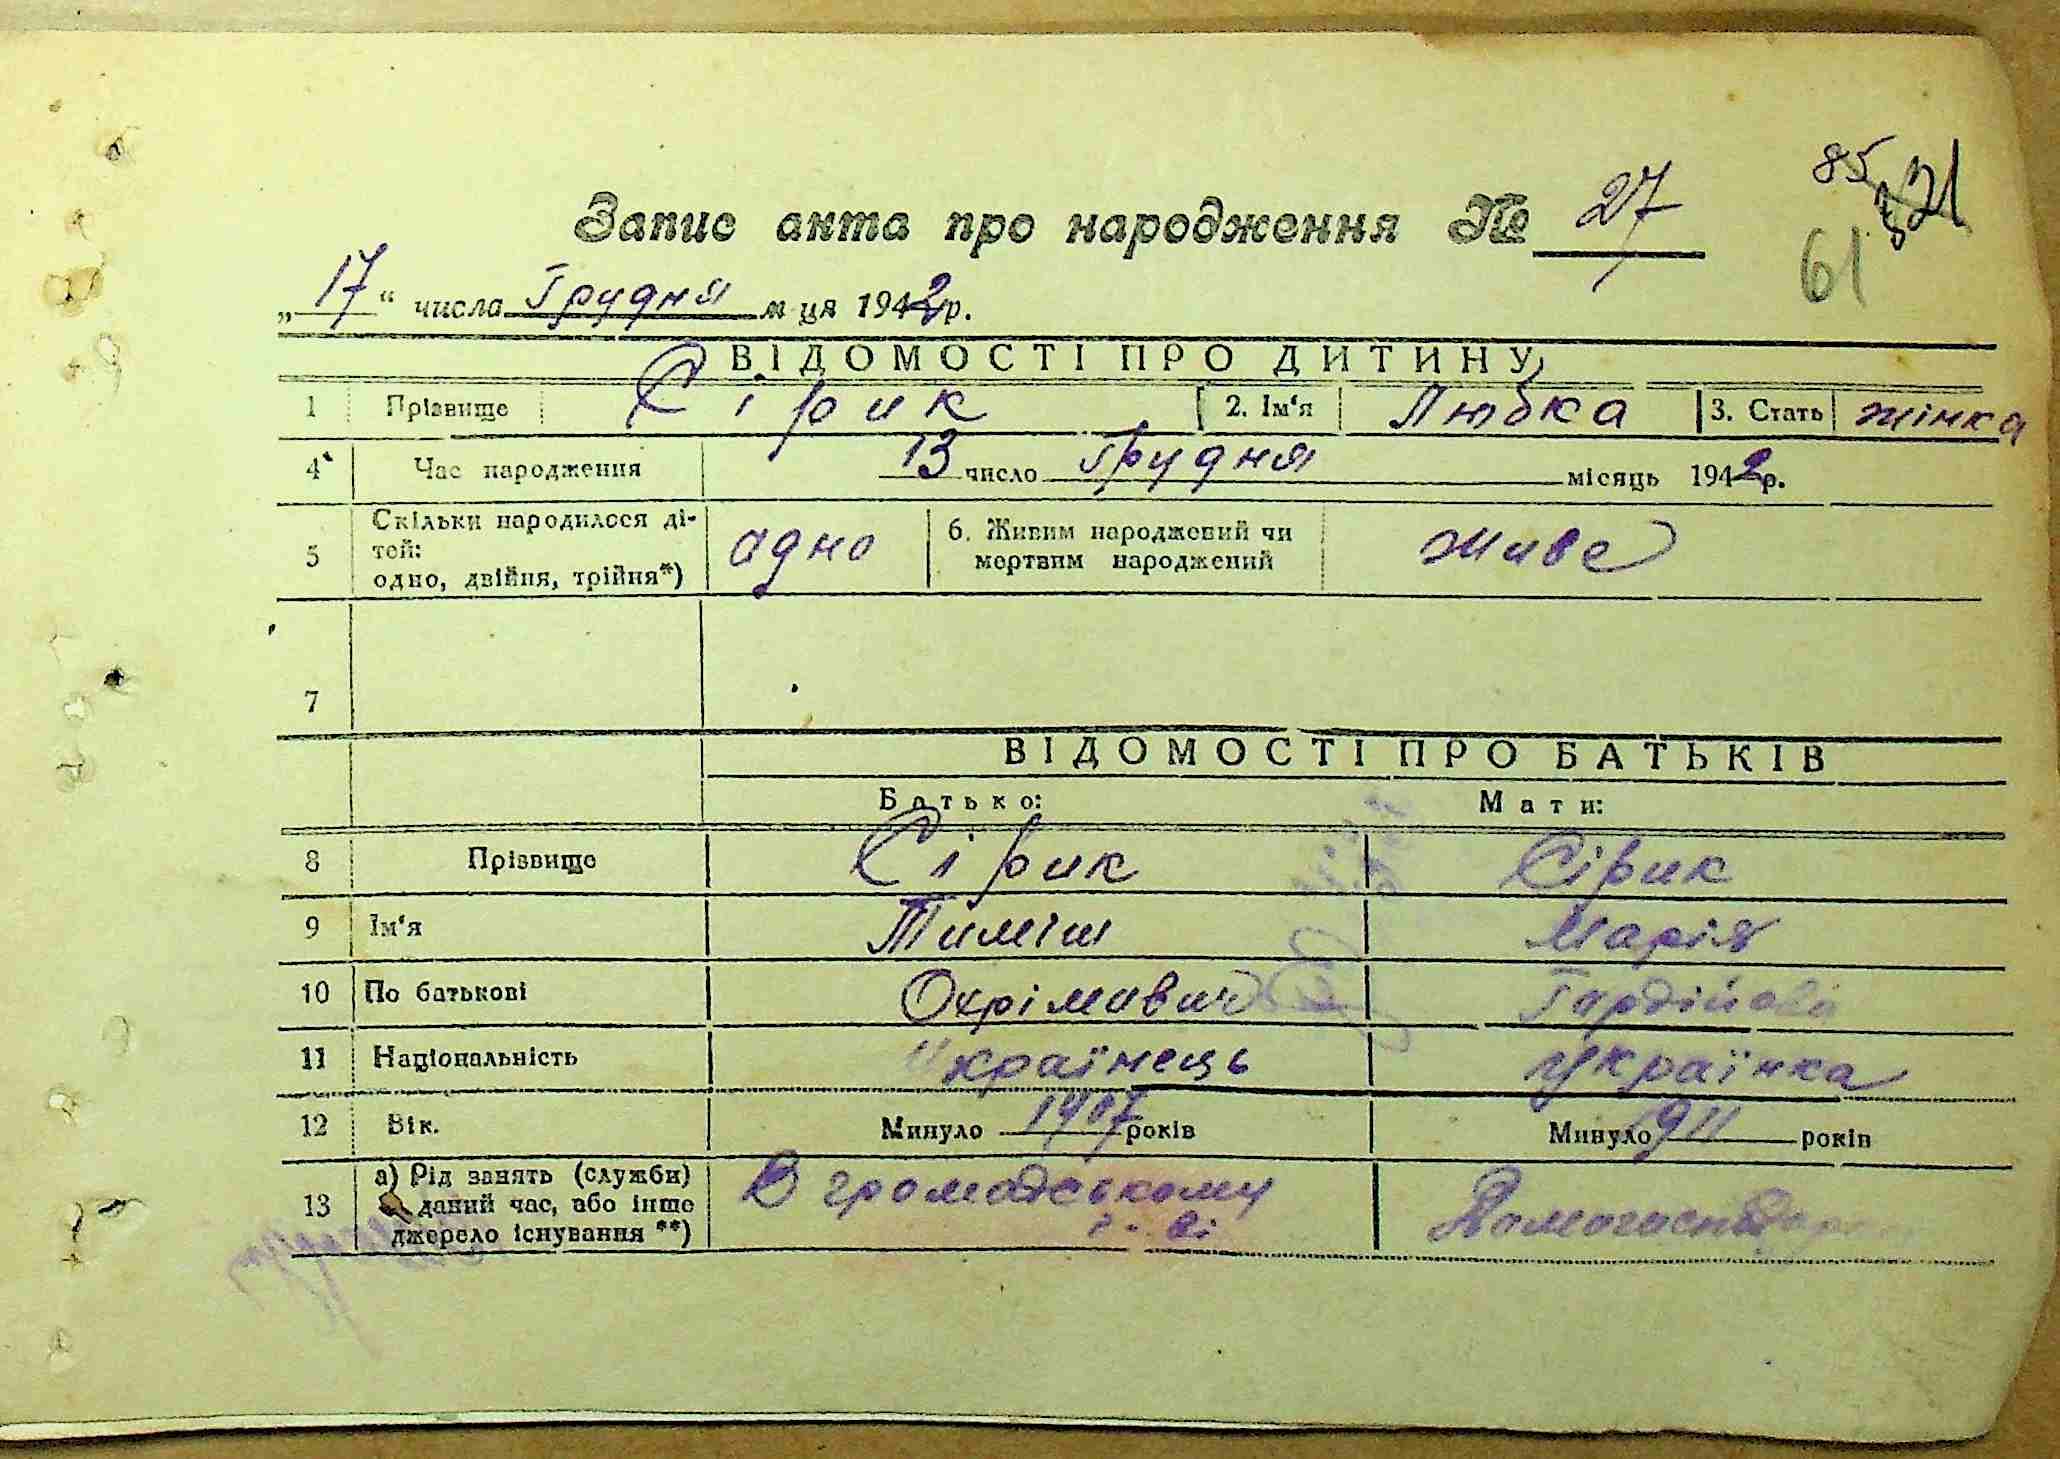 85 321
61
Запис акта про народження № 27
„17“ числа Грудня м-ця 1942р.
ВІДОМОСТІ ПРО ДИТИНУ
1 Прізвище Сірик 2. Ім‘я Любка 3. Стать жінка
4 Час народження 13 число Грудня місяць 1942р.
5 Скільки народилося ді-
тей:
одно, двійня, трійня*) адно 6. Живим народжений чи
мертвим народжений живе
7
ВІДОМОСТІ ПРО БАТЬКІВ
Батько: Мати:
8 Прізвище Сірик Сірик
9 Ім‘я Тиміш Марія
10 По батькові Охрімивич Гордійова
11 Національність Українець Українка
12 Вік. Минуло 1907 років Минуло 1911 років
13 а) Рід занять (служби)
даний час, або інше
джерело існування **) В громадському Домогосподар